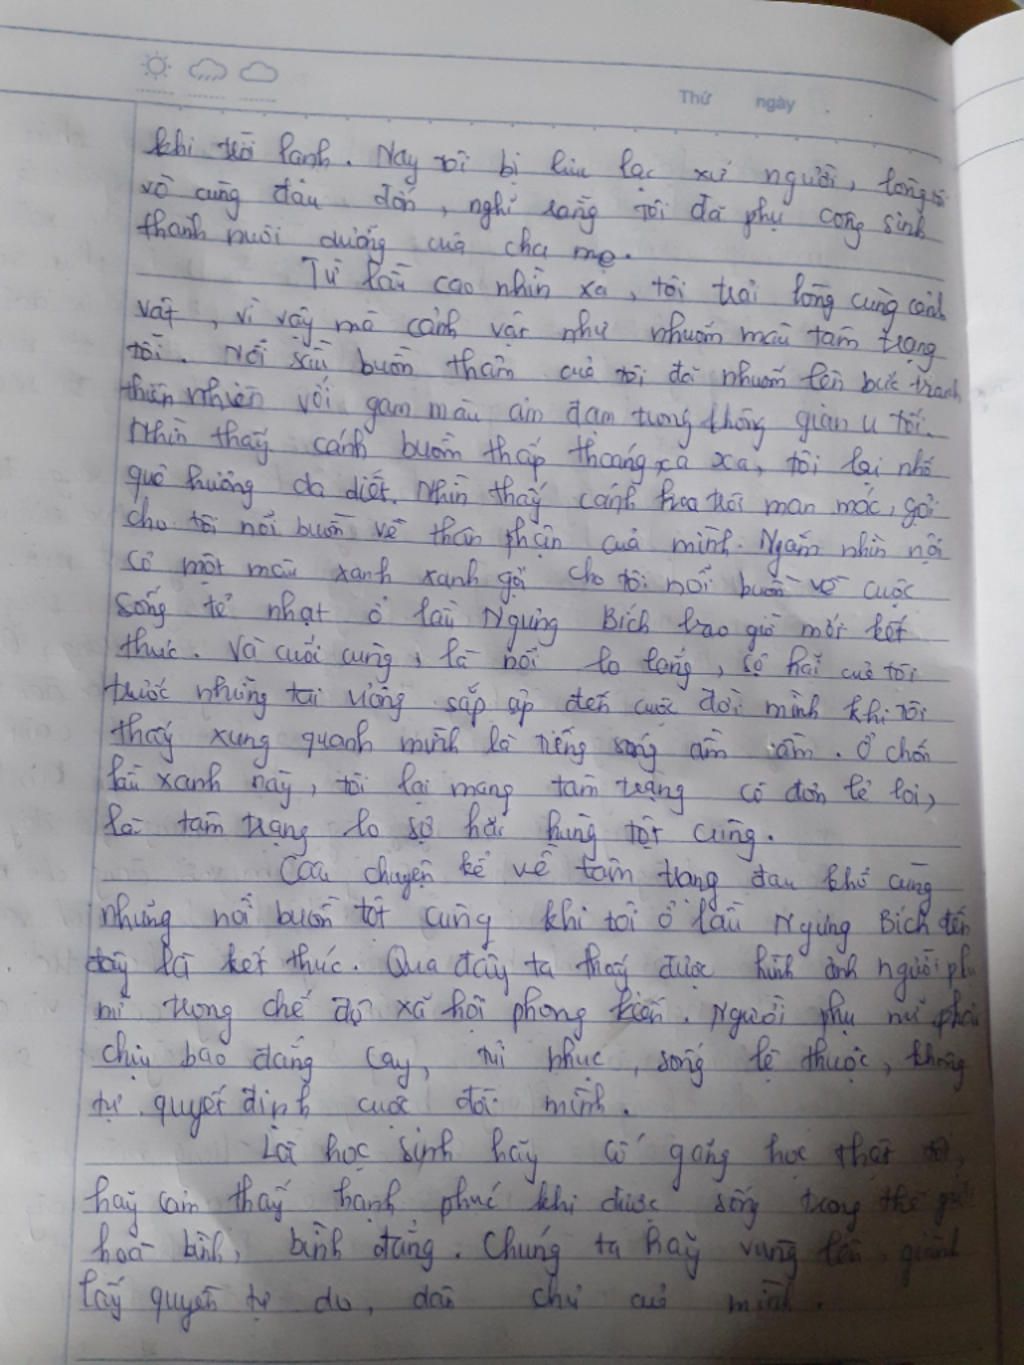 Thứ ngày
khi trời lạnh. Nay tôi bị lưu lạc xứ người, lòng
vô cùng đau đớn, nghĩ rằng tôi đã phụ công sinh
thành nuôi dưỡng của cha mẹ.
Từ lầu cao nhìn xa, tôi trải lòng cùng cảnh
vật, vì vậy mà cảnh vật như nhuốm màu tâm trạng
tôi. Nỗi sầu buồn thảm của tôi đã nhuốm lên bức tranh
thiên nhiên với gam màu ảm đạm trong không gian u tối.
Nhìn thấy cánh buồm thấp thoáng xa xa, tôi lại nhớ
quê hương da diết. Nhìn thấy cánh hoa trôi man mác, gợi
cho tôi nỗi buồn về thân phận của mình. Ngắm nhìn nội
cỏ một màu xanh xanh gợi cho tôi nỗi buồn về cuộc
sống tẻ nhạt ở lầu Ngưng Bích bao giờ mới kết
thúc. Và cuối cùng, là nỗi lo lắng, sợ hãi của tôi
trước những tai ương sắp ập đến cuộc đời mình khi tôi
thấy xung quanh mình là tiếng sóng ầm ầm. Ở chốn
lầu xanh này, tôi lại mang tâm trạng cô đơn lẻ loi,
là tâm trạng lo sợ hãi hùng tột cùng.
Câu chuyện kể về tâm trạng đau khổ cùng
những nỗi buồn tột cùng khi tôi ở lầu Ngưng Bích đến
đây là kết thúc. Qua đây ta thấy được hình ảnh người phụ
nữ trong chế độ xã hội phong kiến. Người phụ nữ phải
chịu bao đắng cay, tủi nhục, sống lệ thuộc, không
tự quyết định cuộc đời mình.
Là học sinh hãy cố gắng học thật tốt,
hãy cảm thấy hạnh phúc khi được sống trong thế giới
hoà bình, bình đẳng. Chúng ta hãy vùng lên giành
lấy quyền tự do, dân chủ của mình.